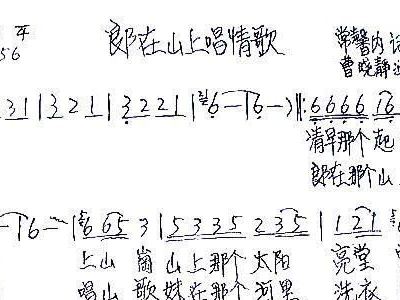 郎在山上唱情歌
常馨内
56
曹晓静
31|321|3221|6—|6—:‖:6666 16
清早那个起
郎在那个山
6—|6 65 3|5335 235|121
上山 崗 山上那个 太阳 亮堂
唱山 歌 妹在那个 河里 洗衣